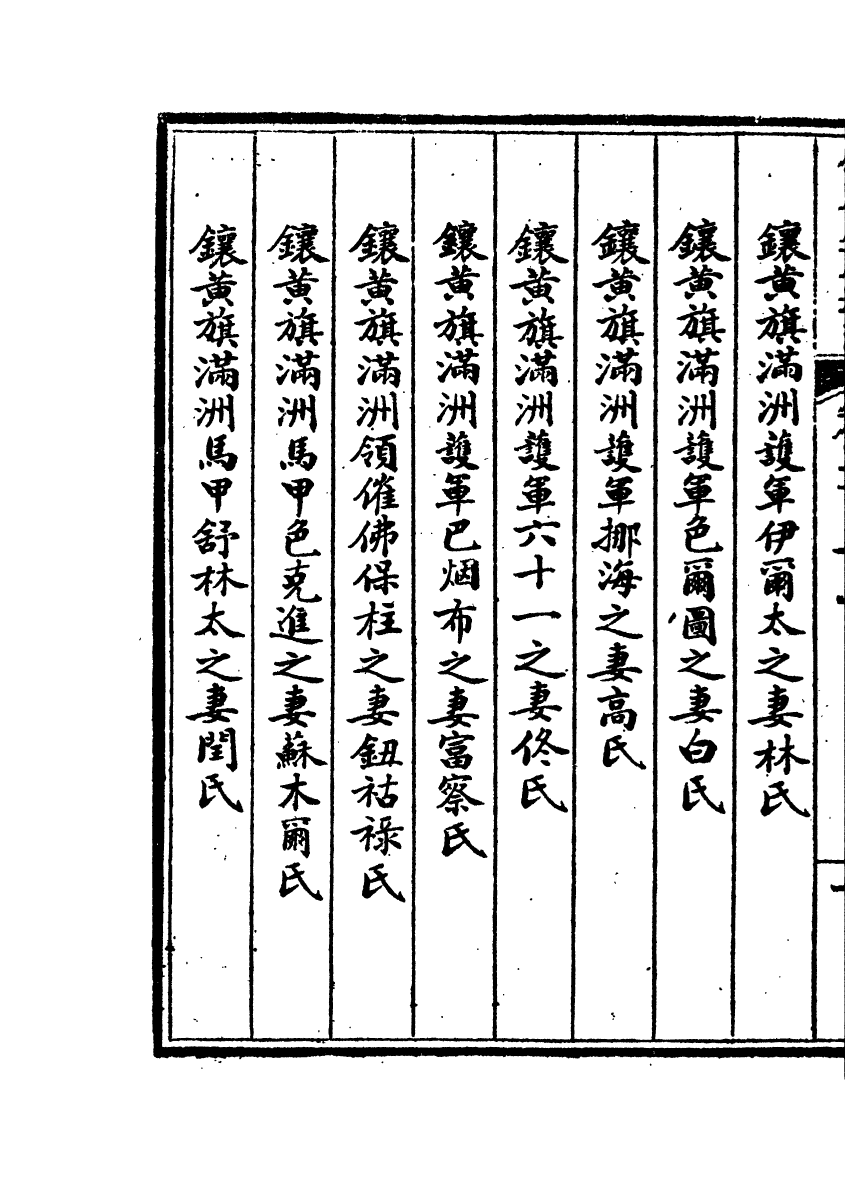 鑲黄旗滿洲護軍伊爾太之妻林氏
鑲黄旗滿洲護軍色爾圖之妻白氏
鑲黄旗滿洲護軍挪海之妻高氏
鑲黄旗滿洲護軍六十一之妻佟氏
鑲黄旗滿洲護軍巴烟布之妻富察氏
鑲黄旗滿洲領催佛保柱之妻鈕祜祿氏
鑲黄旗滿洲馬甲色克進之妻蘇木爾氏
鑲黄旗滿洲馬甲舒林太之妻閏氏